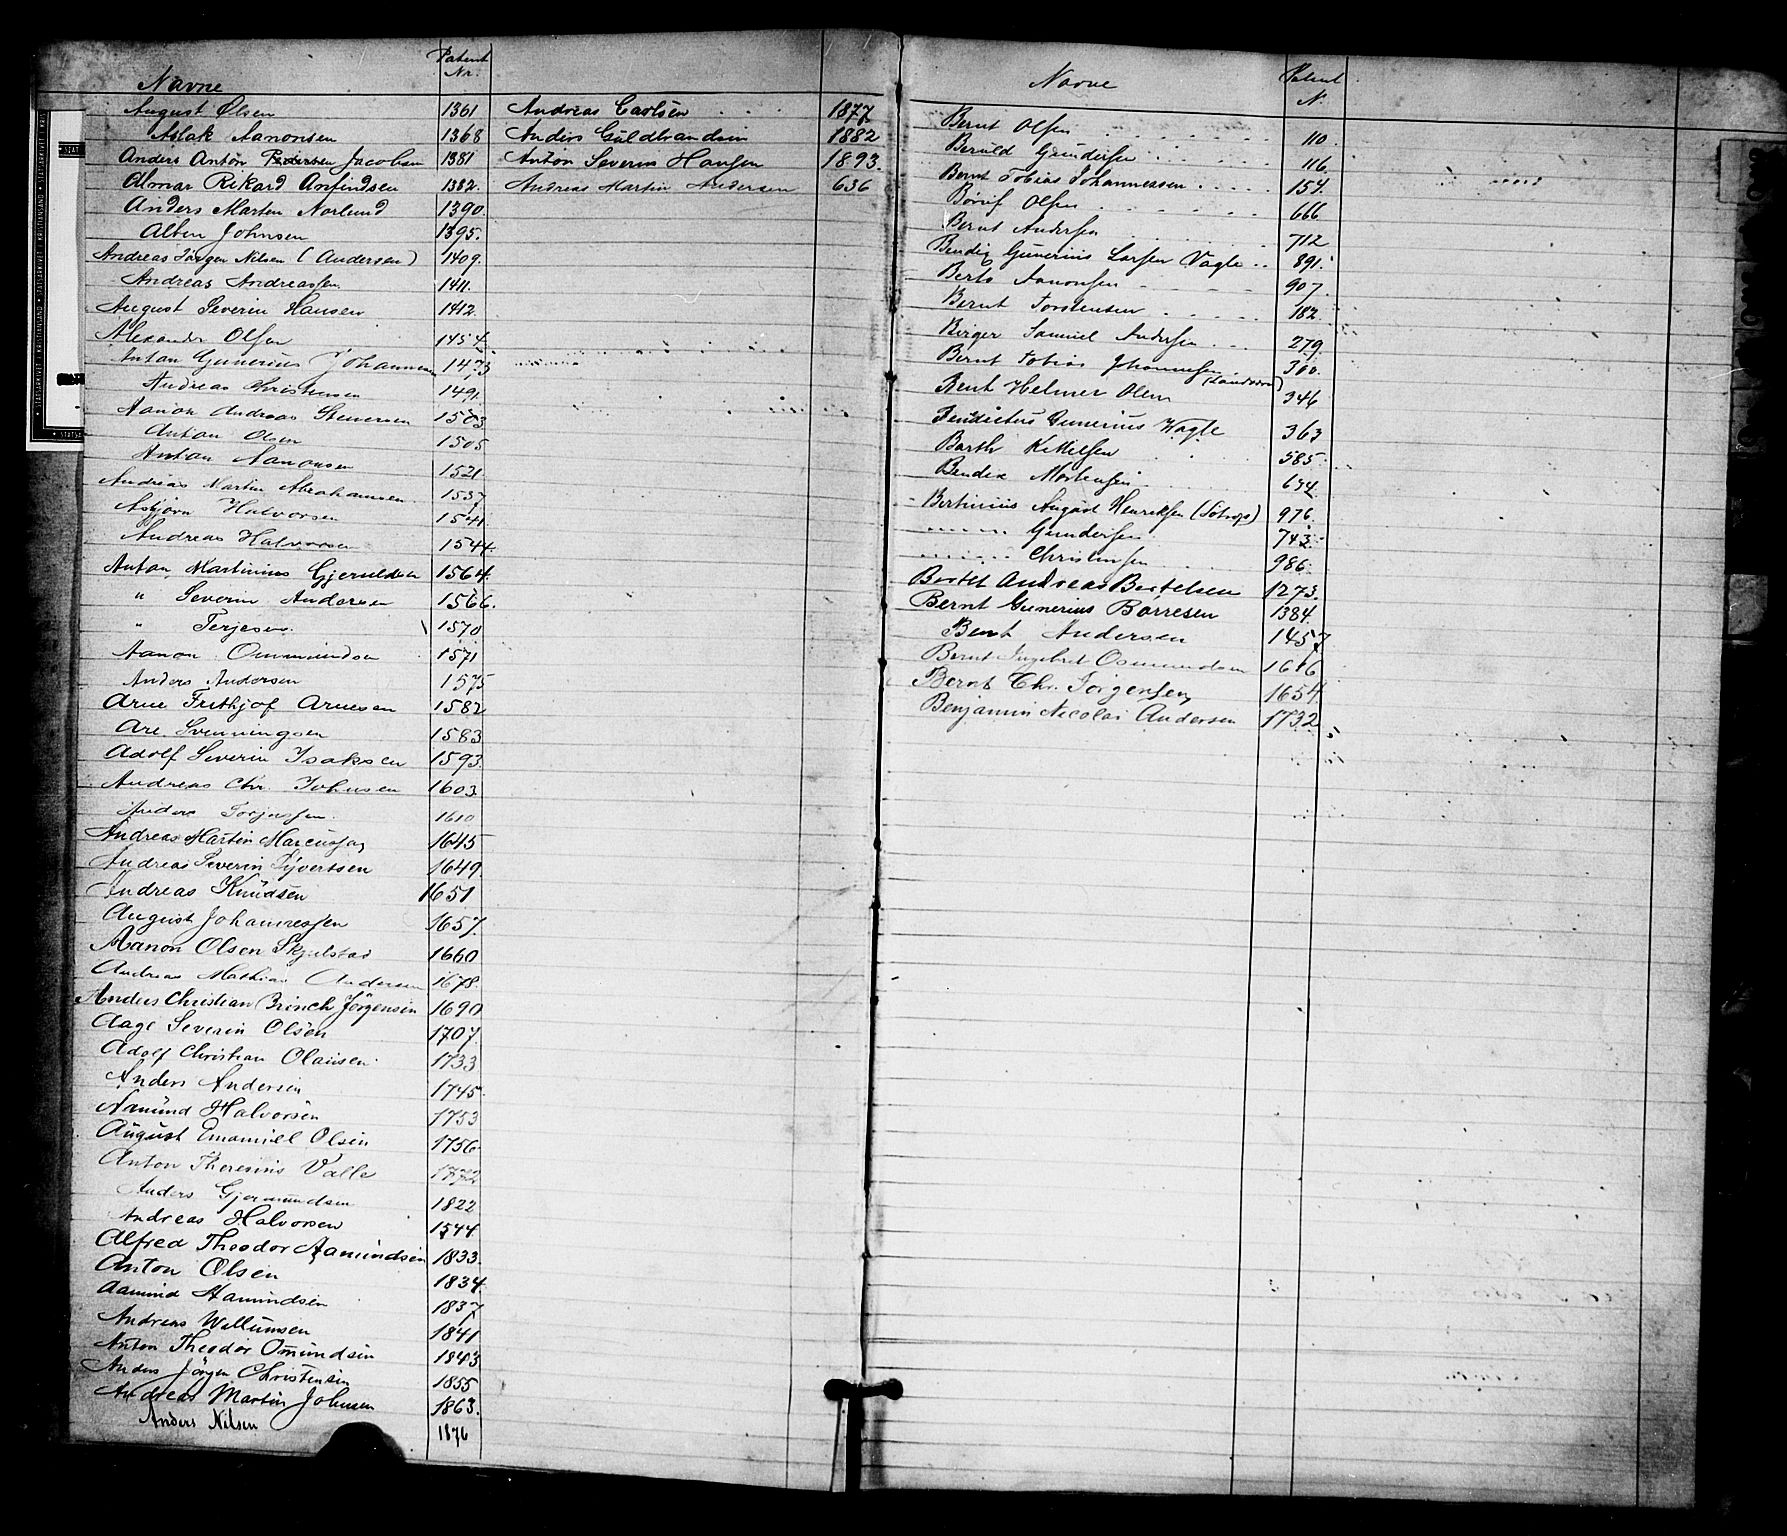 Navne
Patent Nr.
August Olsen 1361
Aslak Aanonsen 1368
Anders Anton Pedersen Jacobsen 1381
Almar Rikard Arnfindsen 1382.
Anders Marten Norlund 1390.
Alben Johnsen 1395.
Andreas Jørgen Nilsen (Andersen) 1409.
Andreas Andreassen. 1411.
August Severin Hansen 1412.
Alexander Olsen 1454.
Anton Gunerius Johannesen 1473
Andreas Christensen 1491.
Aanon Andreas Stenersen 1503
Anton Olsen 1505
Anton Aanonsen 1521.
Andreas Martin Abrahamsen 1537
Asbjørn Halvorsen 1541
Andreas Halvorsen 1544.
Anton Martinius Gjeruldsen 1564.
" Severin Andersen 1566.
" Terjesen. 1570
Aanon Ommundsen 1571
Anders Andersen 1575
Arne Frithjof Arnesen 1582
Are Svenningsen 1583
Adolf Severin Isaksen 1593.
Andreas Chr. Johnsen 1603
Anders Torjussen. 1610
Andreas Martin Marcussen 1645
Andreas Severin Syvertsen 1649.
Andreas Knudsen 1651
August Johannessen 1657.
Aanon Olsen Skjelstad 1660
Andreas Mathias Andersen 1678.
Anders Christian Brinch Jörgensen 1690
Aage Severin Olsen 1707.
Adolf Christian Olausen 1733
Anders Andersen 1745.
Amund Halvorsen 1753
August Emanuel Olsen 1756.
Anton Theresius Valle 1772
Anders Gjermundsen 1822
Andreas Halvorsen 1544.
Alfred Theodor Aamundsen 1833.
Anton Olsen 1834.
Aamund Aamundsen 1837
Andreas Wellumsen 1841
Anton Theodor Omundsen 1843
Anders Jörgen Christensen 1855
Andreas Martin Johnsen 1863.
Anders Nilsen 1876
Andreas Carlsen 1877
Anders Guldbrandsen 1882.
Anton Severin Hansen 1893.
Andreas Martin Andersen 636
Navne
Patent N.
Bernt Olsen 110.
Beruld Gundersen 116.
Bernt Tobias Johannessen 154.
Børuf Olsen 666
Bernt Andersen 712
Bendix Gunerius Larsen Vagle 891.
Berto Aanonsen 907.
Bernt Torstensen 182.
Berger Samuel Andersen 279.
Bernt Tobias Johannesen (Landviken) 300.
Bent Helmer Olsen 346
Bendictus Gunerius Vagle 363
Barth Kittilsen 585.
Bendix Mortensen 634.
Bertinius August Henriksen 976.
" Gundersen 743.
" Christensen 986.
Bertel Andreas Bertelsen 1273.
Bernt Gunerius Børresen 1384.
Bent Andersen 1457
Bernt Ingebret Osmundsen 1616
Bernt Chr. Jørgensen 1654.
Benjamin Nicolai Andersen 1732